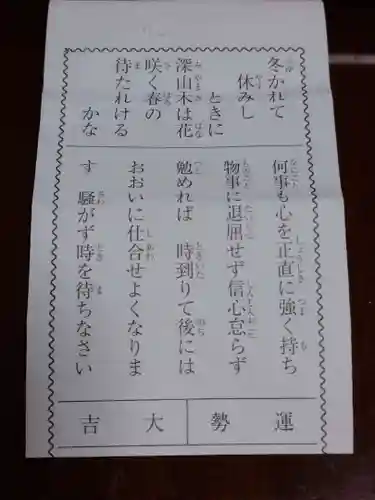 冬かれて
休みし
ときに
深山木は花
咲く春の
待たれける
かな
何事も心を正直に強く持ち
物事に退屈せず信心怠らず
勉めれば 時到りて後には
おおいに仕合せよくなりま
す 騒がず時を待ちなさい
運勢
大吉